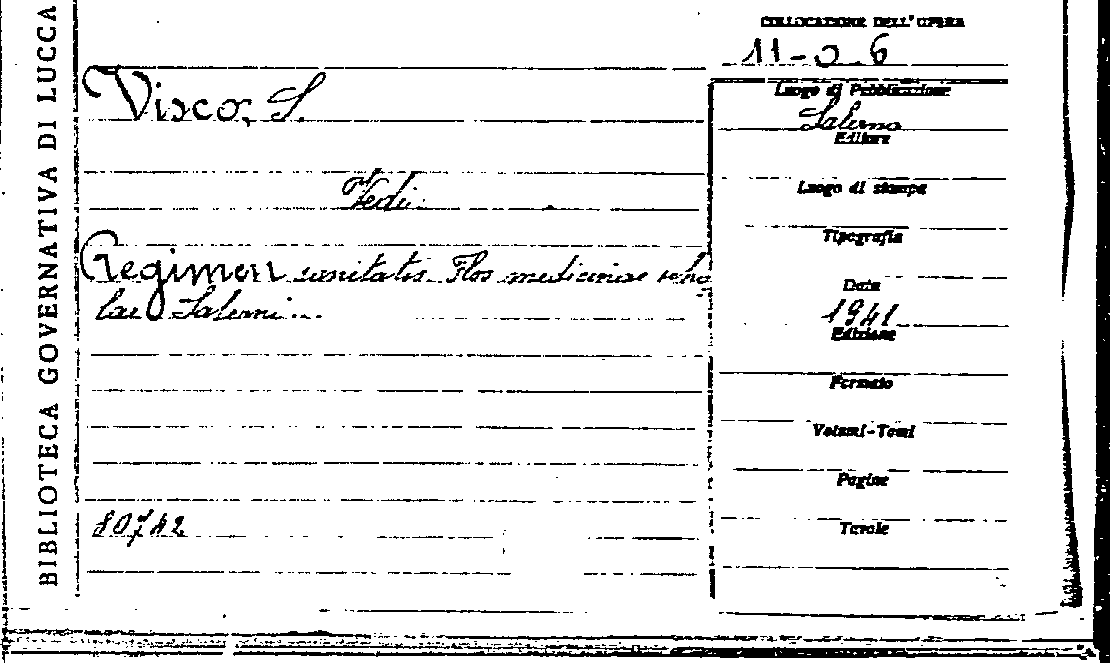 BIBLIOTECA GOVERNATIVA DI LUCCA
COLLOCAZIONE DELL'OPERA
11-0.6
Visco, S.
Luogo di Pubblicazione
Salerno
Editore
Vedi:
Luogo di stampa
Tipografia
Regimen sanitatis. Flos medicinae scho
lae Salerni...
Data
1941
Edizione
Formato
Volumi-Tomi
Pagine
80742
Tavole